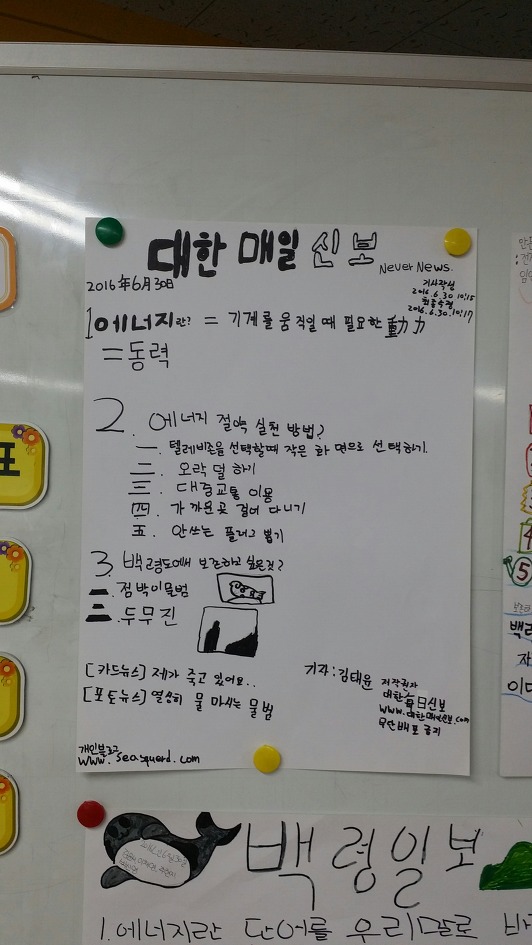 대한 매일 신보
Never News.
2016年6月30日
기사작성
2016.6.30 10:15
최종수정
2016.6.30.10:17
1 에너지란? = 기계를 움직일 때 필요한 動力
=동력
2. 에너지 절약 실천 방법?
一. 텔레비존을 선택할때 작은 화면으로 선택하기.
二. 오락 덜 하기
三. 대중교통 이용
四. 가까운곳 걸어 다니기
五. 안쓰는 플러그 뽑기
3. 백령도에서 보존하고 싶은것?
점박이물범
두무진
[카드뉴스] 제가 죽고 있어요..
[포토뉴스] 열심히 물 마시는 물범
기자:김태윤
저작권자
대한每日신보
www.대한매일신보.com
무단배포 금지
개인블로그
www.seasquard.com
표
5
백령일보
2016년6월30일
1.에너지란 단어를 우리말로